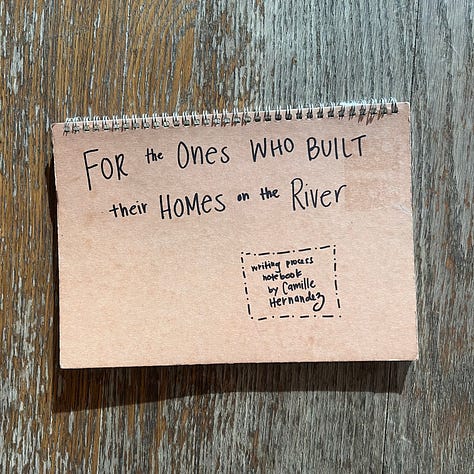 FOR the ONES WHO BUILT
their HOMES on the RIVER
writing process
notebook
by Camille
Hernandez